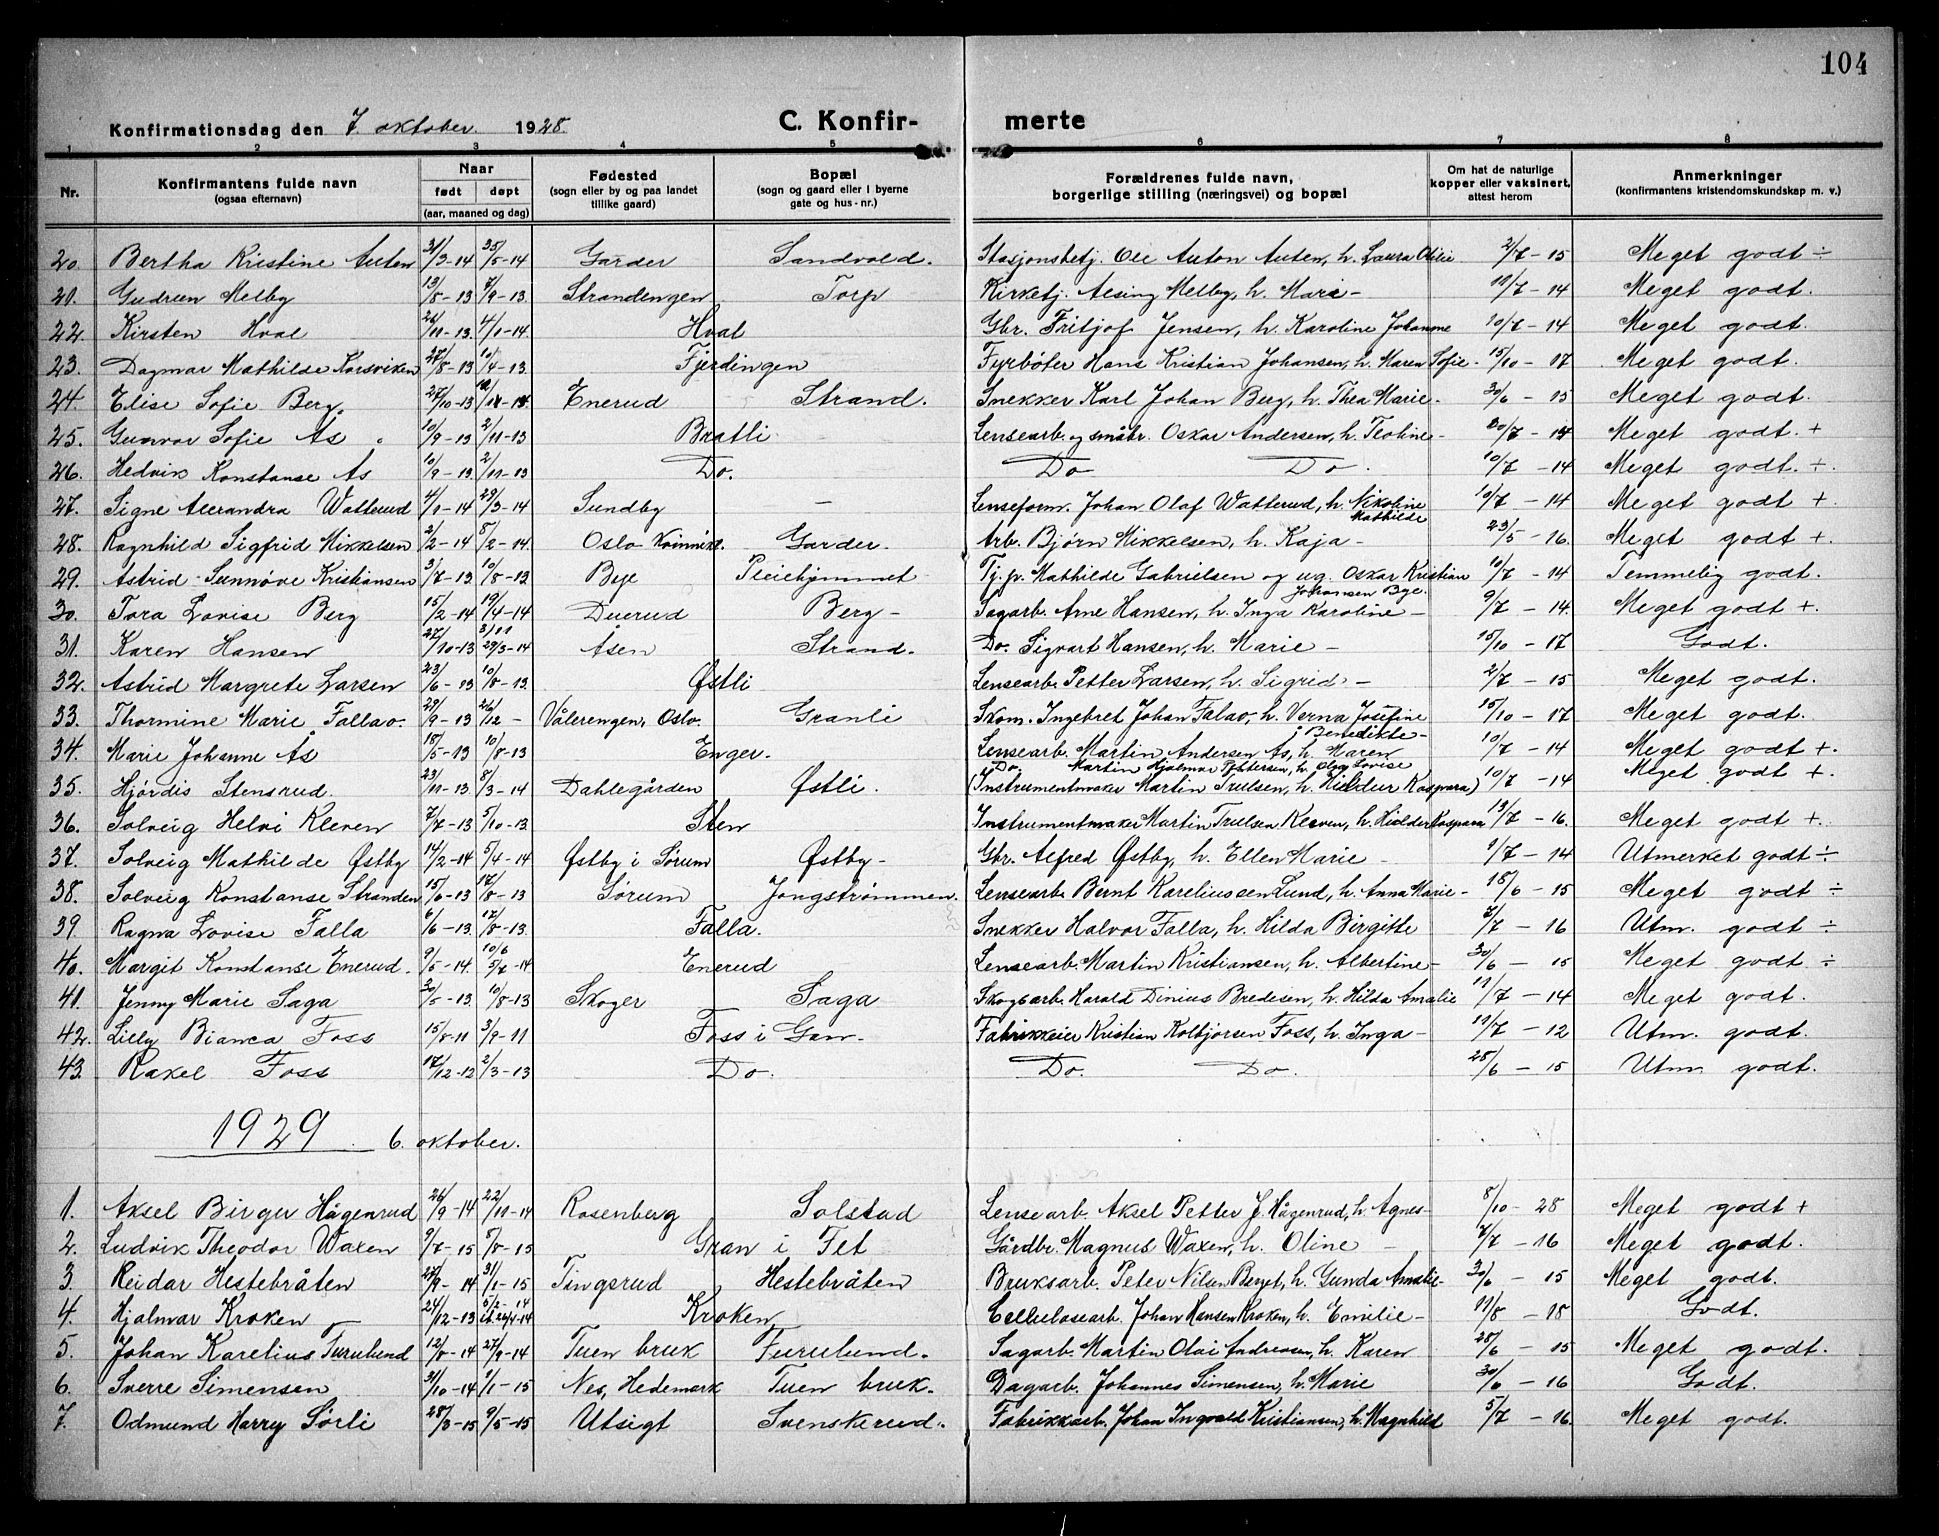 104
Konfirmationsdag den 7. oktober. 1928. C. Konfirmerte
1 2 3 4 5 6 7 8
Nr. Konfirmantens fulde navn (ogsaa efternavn) Naar født døpt (aar, maaned og dag) Fødested (sogn eller by og paa landet tillike gaard) Bopæl (sogn og gaard eller i byerne gate og hus-nr.) Forældrenes fulde navn, borgerlige stilling (næringsvei) og bopæl Om hat de naturlige kopper eller vaksinert, attest herom Anmerkninger (konfirmantens kristendomskundskap m. v.)
20. Bertha Kristine Auten 31/3-14 25/5-14 Garder Sandvold. Stasjonsbetj. Ole Anton Auten, h. Laura Otilie 2/7-15 Meget godt ÷
21. Gudrun Melby 13/8-13 7/9-13. Strandengen Torp Kirketj. Alsing Melby, h. Marie - 11/7-14 Meget godt.
22. Kirsten Hval 26/11-13 4/1-14. Hval Gbr. Fritjof Jensen, h. Karoline Johanne 10/7-14 Meget godt.
23. Dagmar Mathilde Korsviken 27/8-13 10/4-13. Fjerdingen Fyrbøter Hans Kristian Johansen, h. Maren Sofie - 15/10-17 Meget godt.
24. Elise Sofie Berg. 27/10-13 Enerud Strand. Snekker Karl Johan Berg, h. Thea Marie - 30/6-15 Meget godt.
25. Gunvor Sofie Ås 10/9-13 2/11-13 Bratli Lensearb. og småbr. Oskar Andersen, h. Teoline - 20/7-14 Meget godt. +
26. Hedvik Konstanse Ås 10/9-13 2/11-13 Do. Do Do. 10/7-14 Meget godt. +.
27. Signe Alexandra Watterud 4/1-14 29/3-14 Sundby - Lenseform. Johan Olaf Watterud, h. Nikoline Mathilde 10/7-14 Meget godt +
28. Ragnhild Sigfrid Mikkelsen 2/2-14 8/2-14. Oslo Kvinnekl. Garder. Arb. Bjørn Mikkelsen, h. Kaja - 23/5-16. Meget godt +.
29. Astrid Sunnøve Kristiansen 3/7-13 10/8-13 Bye Pleiehjemmet Tj. p. Mathilde Gabrielsen og ug. Oskar Kristian Johansen Bye. 10/7-14 Temmelig godt.
30. Tora Lovise Berg 15/2-14 19/4-14 Duerud Berg - Sagarb. Arne Hansen, h. Inga Karoline - 9/7-14. Meget godt +.
31. Karen Hansen 27/10-13 29/3-14 Åsen Strand. Do. Sigvart Hansen, h. Marie - 15/10-17 Godt.
32. Astrid Margrete Larsen 23/6-13 10/8-13. Østli Lensearb. Petter Larsen, h. Sigrid - 2/7-15 Meget godt.
33. Thormine Marie Fallao. 29/9-13 26/12- Vålerengen, Oslo. Granli Skom. Ingebret Johan Falao, h. Verna Josefine Benedikte - 15/10-17 Meget godt.
34. Marie Johanne Ås 18/5-13 10/8-13 Enger. Lensearb. Martin Andersen Ås, h. Maren 10/7-14 Meget godt +.
35. Hjørdis Stensrud. 23/11-13 8/3-14 Dahlegården Østli. Do. Martin Hjalmar Pettersen, h. Olga Lovise (Instrumentmaker Martin Trulsen, h. Hildur Kaspara) 10/7-14 Meget godt +.
36. Solveig Helvi Kleven 7/7-13 5/10-13. Sten Instrumentmaker Martin Trulsen Kleven, h. Hildur Kaspara 13/7-16. Meget godt +.
37. Solveig Mathilde Østby 14/2-14 5/4-14 Østby i Sørum Østby - Gbr. Alfred Østby, h. Ellen Marie - 1/7-14 Utmerket godt ÷
38. Solveig Konstanse Stranden 15/6-13 17/8-13 Sørum Jongstrømmen. Lensearb. Bernt Kareliussen Lund, h. Anna Marie - 18/6-15 Meget godt ÷
39. Ragna Lovise Falla 6/6-13. 17/8-13. Falla. Snekker Halvor Falla, h. Hilda Birgitte 7/7-16 Utm. godt ÷
40. Margit Konstanse Enerud. 9/5-14. 5/7-14 Enerud Lensearb. Martin Kristiansen, h. Albertine - 30/6-15 Meget godt ÷
41. Jenny Marie Saga 20/5-13. 10/8-13 Skoger Saga Skogsarb. Harald Dinius Bredesen, h. Hilda Amalie 11/7-14 Meget godt.
42. Lilly Bianca Foss 15/8-11 3/9-11 Foss i Gan. Fabrikkeier Kristian Kolbjørsen Foss, h. Inga - 11/7-12 Utm. godt.
43. Rakel Foss 17/12-12 2/3-13 Do. Do. Do. 25/6-15 Utm. godt.
1929. 6. oktober.
1. Aksel Birger Hågenrud 26/9-14 22/11-14 Rosenberg Solstad Lensearb. Aksel Petter J. Hågenrud, h. Agnes - 8/10-28 Meget godt +
2. Ludvik Theodor Waxen 9/7-15 8/8-15 Gran i Fet Gårdbr. Magnus Waxen, h. Oline - 7/7-16 Meget godt.
3. Reidar Hestebråten 27/9-14 31/1-15 Tingsrud Hestebråten Bruksarb. Peter Nilsen Berget, h. Gunda Amalie - 30/6-15 Meget godt.
4. Hjalmar Kroken - 24/12-13 5/2-14 st. 26/4-14 Kroken Cellulosearb. Johan Hansen Kroken, h. Emilie - 11/8-18 Godt.
5. Johan Karelius Furulund 12/8-14 27/9-14 Tuen bruk Furulund. Sagarb. Martin Olai Andreasen, h. Karen 28/6-15 Meget godt.
6. Sverre Simensen 31/10-14 1/1-15 Nes, Hedemark Tuen bruk. Dagarb. Johannes Simensen, h. Marie 30/6-16 Godt.
7. Odmund Harry Sørli 28/3-15 9/5-15 Utsigt Svenskerud. Fabrikkarb. Johan Ingvald Kristiansen, h. Magnhild 5/7-16. Meget godt.